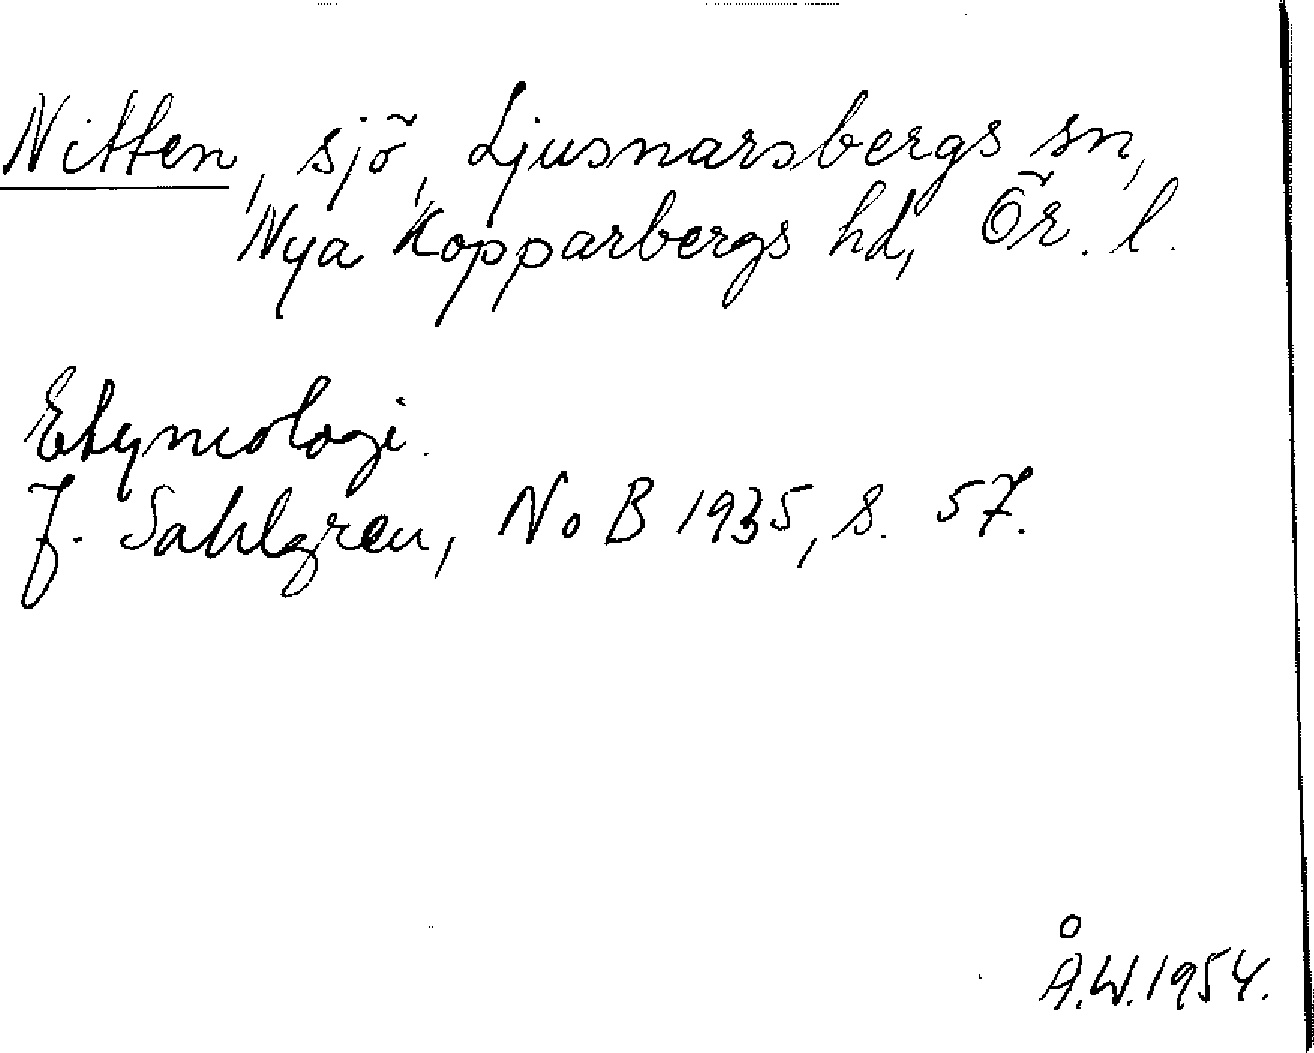 Nitten, sjö, Ljusnarsbergs sn,
Nya Kopparbergs hd, Ör. l.
Etymologi.
J. Sahlgren, NoB 1935, s. 57.
Å.W. 1954.